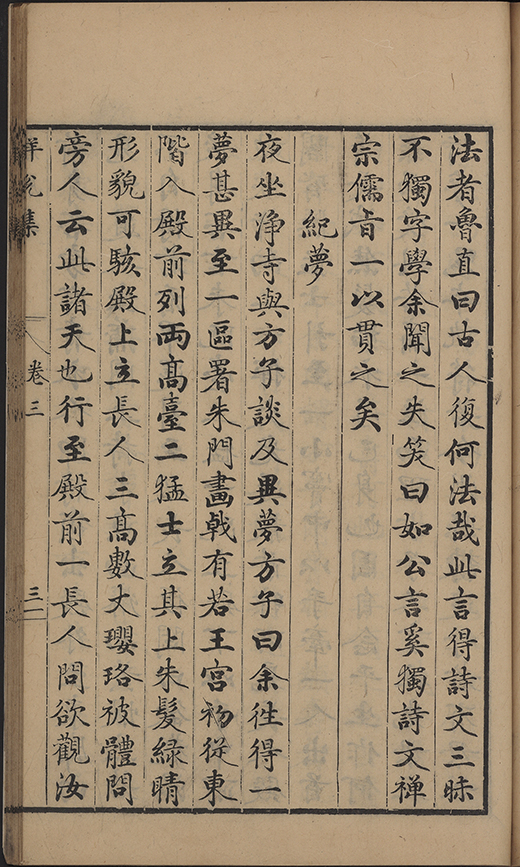 法者魯直曰古人復何法哉此言得詩文三昧
不獨字學余聞之失笑曰如公言奚獨詩文禅
宗儒旨一以貫之矣
紀夢
夜坐淨寺與方子談及異夢方子曰余徃得一
夢甚異至一區署朱門畫戟有若王宮初從東
階入殿前列两髙臺二猛士立其上朱髮緑睛
形貌可駭殿上立長人三髙數丈瓔珞被體問
旁人云此諸天也行至殿前一長人問欲觀汝
集 卷三 三一